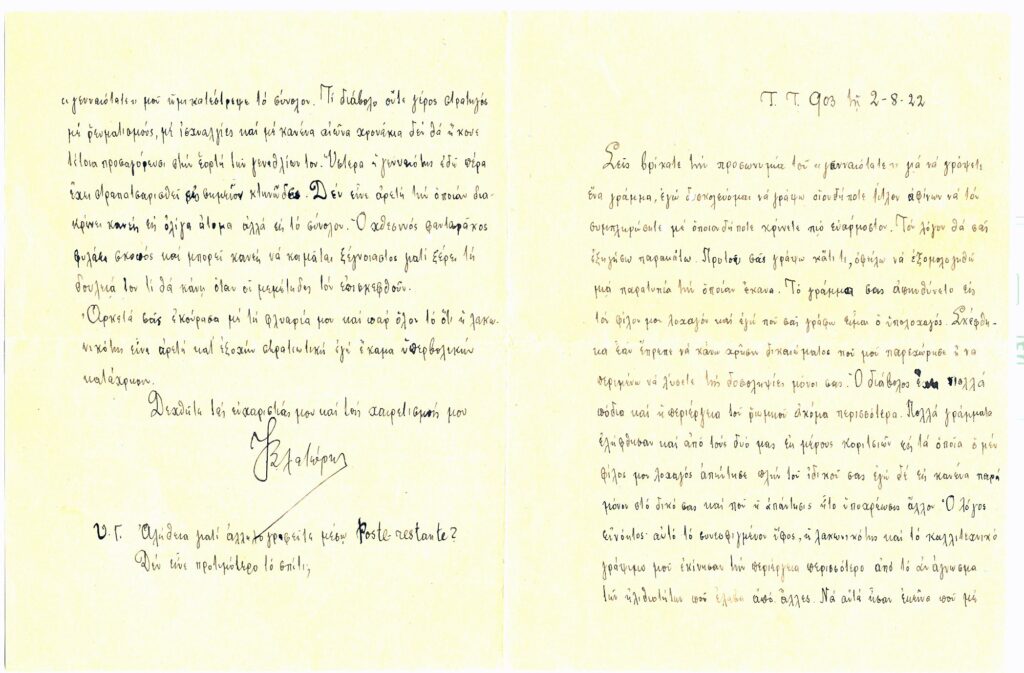 Τ. Τ. 903 τῇ 2-8-22
Σεῖς βρίκατε τήν προσωνυμία τοῦ «γενναιότατε» γιά νά γράψετε
ἕνα γράμμα, ἐγώ δυσκολεύομαι νά γράψω οἱονδήποτε τίτλον ἀφίνων νά τόν
συμπληρώσετε μέ ὁποιονδήποτε κρίνετε πιό εὐάρμοστον. Τόν λόγον θά σᾶς
ἐξηγήσω παρακάτω. Πρίν σᾶς γράψω κἄτι τι, ὀφείλω νά ἐξομολογηθῶ
μιά παρατυπία τήν ὁποίαν ἔκανα. Τό γράμμα σας ἀπηυθύνετο εἰς
τόν φίλον μου λοχαγόν καί ἐγώ πού σᾶς γράφω εἶμαι ὁ ὑπολοχαγός. Σκέφθη-
κα ἐάν ἔπρεπε νά κάνω χρῆσιν δικαιώματος πού μοῦ παρεχώρησε ἤ νά
περιμένω νά λύσετε τής δοσοληψίες μόνοι σας. Ὁ διάβολος ἔχει πολλά
πόδια καί ἡ περιέργεια τοῦ ρωμιοῦ ἀκόμα περισσότερα. Πολλά γράμματα
ἐλήφθησαν καί ἀπό τούς δυό μας ἐκ μέρους κοριτσιῶν εἰς τά ὁποῖα ὁ μέν
φίλος μου λοχαγός ἀπήντησε πλήν τοῦ ἰδικοῦ σας ἐγώ δέ εἰς κανένα παρά
μόνον στό δικό σας καί πού ἡ ἀπάντησις ἦτο ὑποχρέωσις ἄλλου. Ὁ λόγος
εὐνόητος· αὐτό τό συνεσφιγμένον ὕφος, ἡ λακωνικότης καί τό καλλιτεχνικό
γράψιμο μοῦ ἐκίνησαν τήν περιέργεια περισσότερο ἀπό τό ἀνάγνωσμα
τῶν ἠλιθιοτήτων πού ἔλαβα ἀπό ἄλλες. Νά αὐτά ἦσαν ἐκεῖνα πού μέ
«γενναιότατε» μοῦ κατέστρεψε τό σύνολον. Τί διάβολο οὔτε γέρος στρατηγός
μέ ῥευματισμούς, μέ ἰσχναλγίες καί μέ κανένα αἰῶνα χρονάκια δέν θά ἤκουε
τέτοια προσαγόρευσι στήν ἑορτή τῶν γενεθλίων του. Ὕστερα ἡ γενναιότης ἐδῶ πέρα
ἔχει στραπατσαρισθεῖ εἰς σημεῖον κτηνῶδες. Δέν εἶνε ἀρετή τήν ὁποίαν δια-
κρίνει κανείς εἰς ὀλίγα ἄτομα ἀλλά εἰς τό σύνολον. Ὁ χθεσινός φανταράκος
φυλάει σκοπός καί μπορεῖ κανείς νά κοιμᾶται ξέγνοιαστος γιατί ξέρει τή
δουλειά του τί θά κάνῃ ὅταν οἱ μεμέτηδες τόν ἐπισκεφθοῦν.
Ἀρκετά σᾶς ἐκούρασα μέ τή φλυαρία μου καί παρ' ὅλον τό ὅτι ἡ λακω-
νικότης εἶνε ἀρετή κατ' ἐξοχήν στρατιωτική ἐγώ ἔκαμα ὑπερβολικήν
κατάχρησιν.
Δεχθῆτε τάς εὐχαριστίας μου καί τούς χαιρετισμούς μου
Υ. Γ. Ἀλήθεια γιατί ἀλληλογραφεῖτε μέσῳ Poste-restante?
Δέν εἶνε προτιμότερο τό σπίτι;